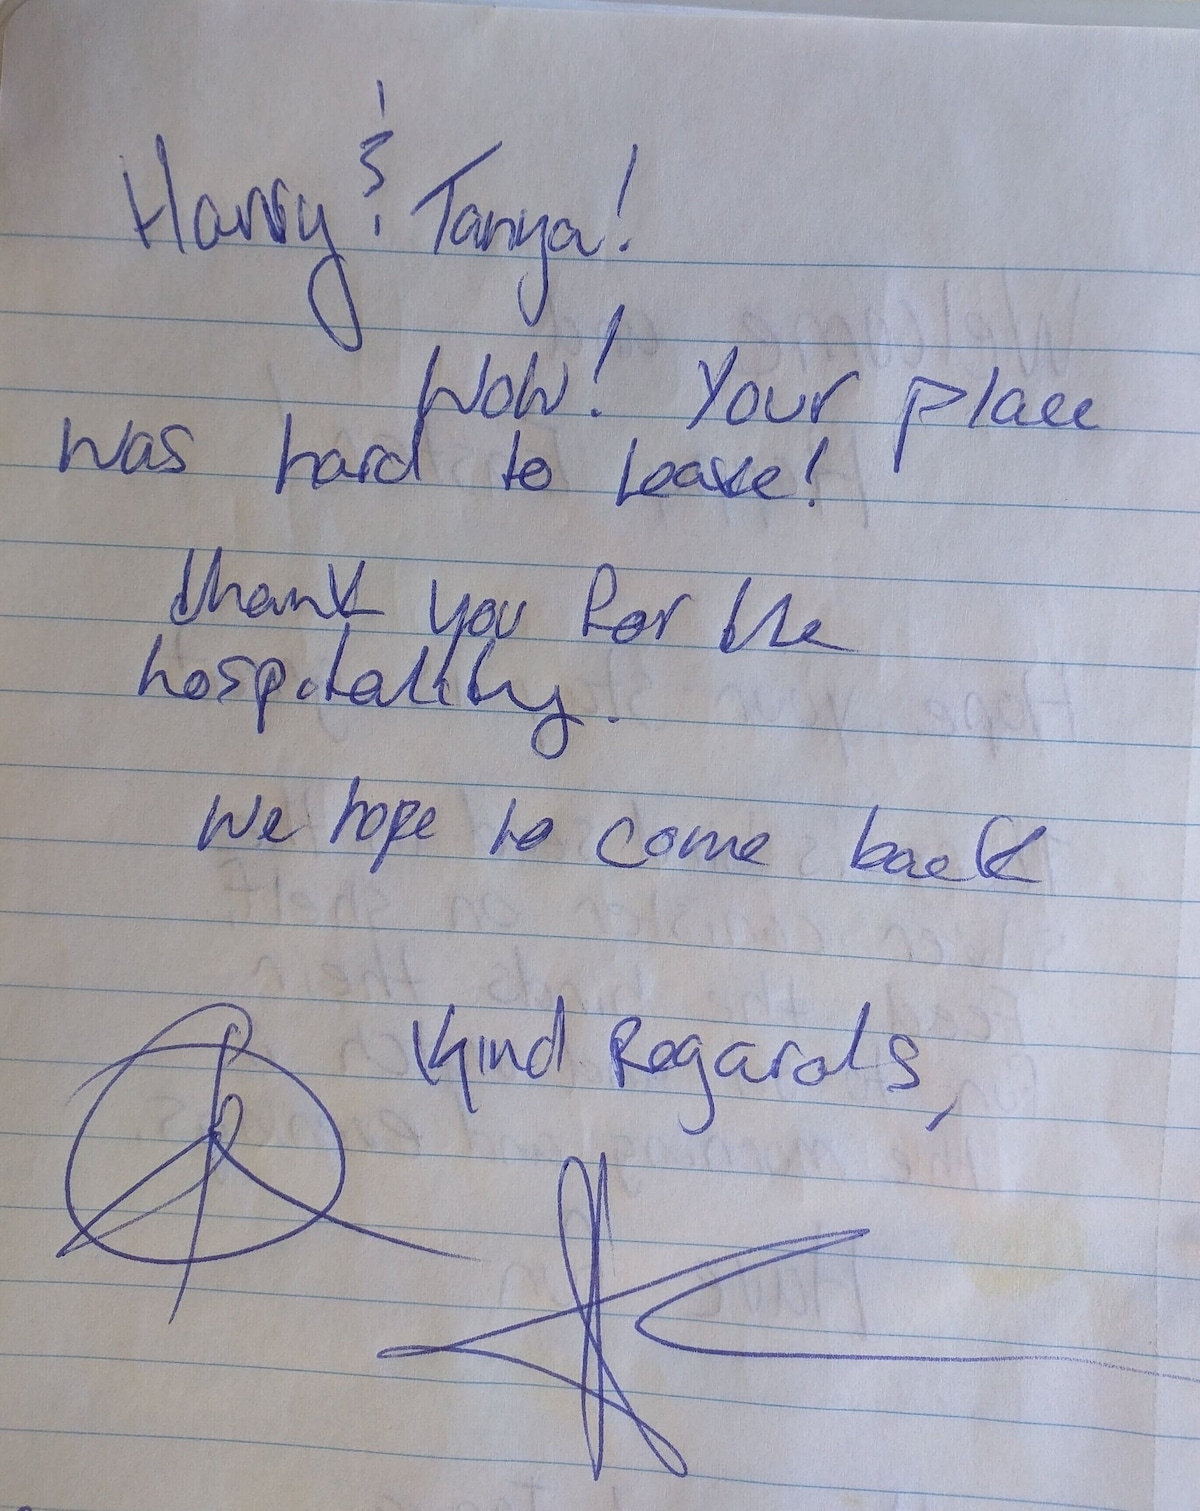 Harvy & Tanya!
Wow! Your place
was hard to leave!
thank you for the
hospitality.
we hope to come back
Kind Regards,